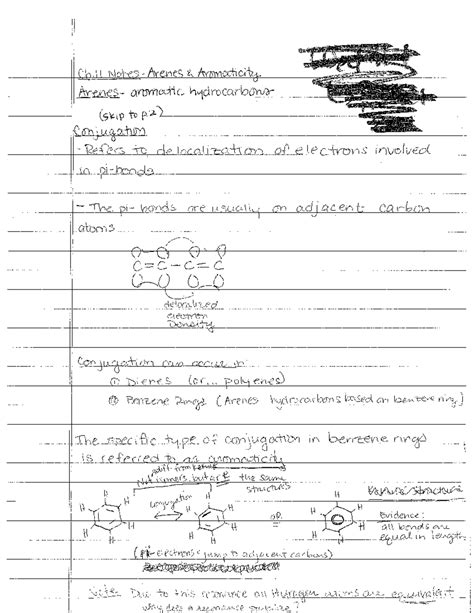 Ch.11 Notes - Arenes & Aromaticity
Arenes - aromatic hydrocarbons
(skip to p.2)
Conjugation
- Refers to delocalization of electrons involved
in pi-bonds
- The pi-bonds are usually on adjacent carbon
atoms
C=C-C=C
delocalized
electron
Density
Conjugation can occur in
① Dienes (or... polyenes)
② Benzene Rings (Arenes hydrocarbons based on benzene ring)
The specific type of conjugation in benzene rings
is referred to as aromaticity
Not isomers, but are the same
structures
Conjugation
H H H H H H
or
H H H H H H
H H H H H H
Evidence:
all bonds are
equal in length
(pi-electrons jump to adjacent carbons)
Note: Due to this resonance all Hydrogen atoms are equivalent